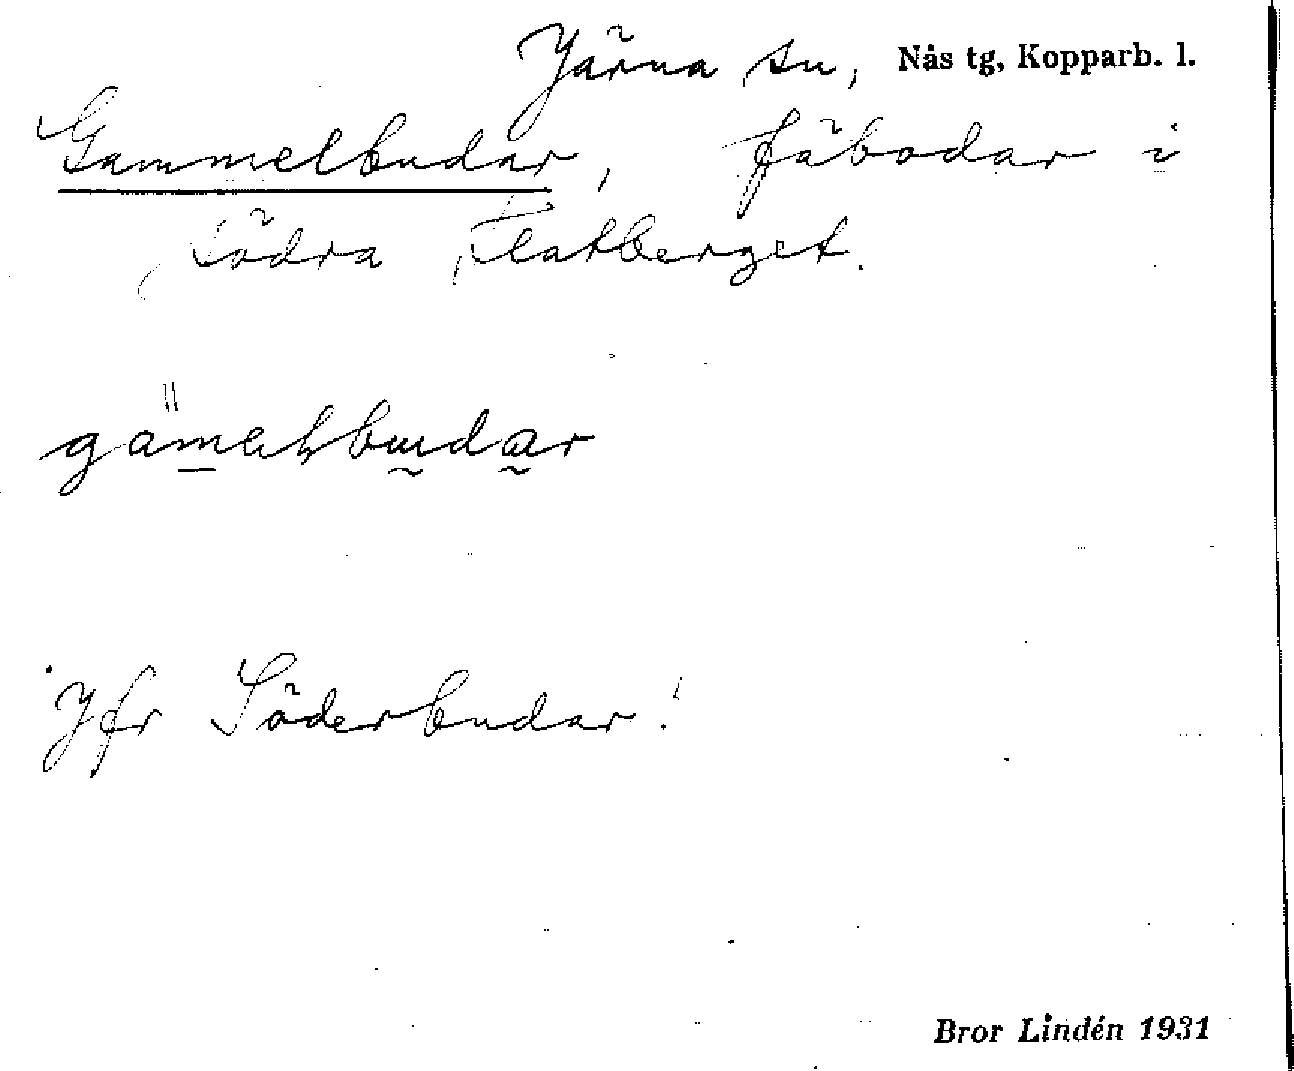 Järna sn, Nås tg, Kopparb. l.
Gammelbudar, fäbodar i
Södra Flatberget.
Jfr Söderbudar!
Bror Lindén 1931